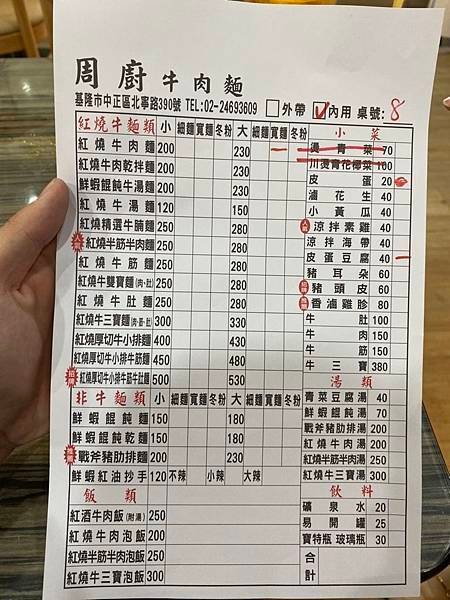 周廚牛肉麵
基隆市中正區北寧路390號 TEL:02-24693609 □外帶 ☑內用 桌號: 8
紅燒牛麵類 小 細麵 寬麵 冬粉 大 細麵 寬麵 冬粉
紅燒牛肉麵 200 230 一
紅燒牛肉乾拌麵 200 230
鮮蝦餛飩牛湯麵 200 230
紅燒牛湯麵 120 150
紅燒精選牛腩麵 250 280
紅燒半筋半肉麵 250 280
紅燒牛筋麵 250 280
紅燒牛雙寶麵(肉、肚) 250 280
紅燒牛肚麵 250 280
紅燒牛三寶麵(肉、筋、肚) 300 330
紅燒厚切牛小排麵 400 430
紅燒厚切牛小排牛筋麵 450 480
紅燒厚切牛小排牛筋牛肚麵 500 530
非牛麵類 小 細麵 寬麵 冬粉 大 細麵 寬麵 冬粉
鮮蝦餛飩麵 150 180
鮮蝦餛飩乾麵 150 180
戰斧豬肋排麵 200 230
鮮蝦紅油抄手 120 不辣 小辣 大辣
飯類
紅酒牛肉飯(附湯) 250
紅燒牛肉泡飯 200
紅燒半筋半肉泡飯 250
紅燒牛三寶泡飯 300
小菜
燙青菜 70
川燙青花椰菜 100
皮蛋 20
滷花生 40
小黃瓜 40
涼拌素雞 40
涼拌海帶 40
皮蛋豆腐 40 一
豬耳朵 60
豬頭皮 60
香滷雞胗 80
牛肚 100
牛肉 150
牛筋 150
牛三寶 380
湯類
青菜豆腐湯 40
鮮蝦餛飩湯 70
戰斧豬肋排湯 200
紅燒牛肉湯 200
紅燒半筋半肉湯 250
紅燒牛三寶湯 300
飲料
礦泉水 20
易開罐 25
寶特瓶 玻璃瓶 30
合計